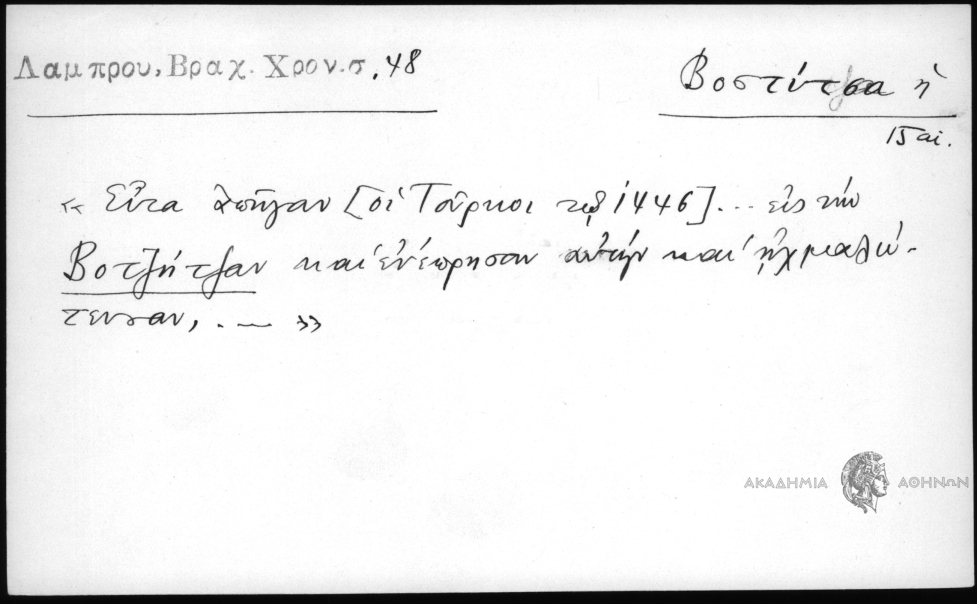 Λαμπρου, Βραχ. Χρον. σ, 48
Βοστίτσα ἡ
15 αἰ.
« Εἶτα ἀπῆγαν [οἱ Τοῦρκοι τῷ 1446] ... εἰς τὴν
Βοτζήτζαν καὶ ἐνέπρησαν αὐτὴν καὶ ᾐχμαλώ-
τευσαν, . — »
ΑΚΑΔΗΜΙΑ ΑΘΗΝΩΝ